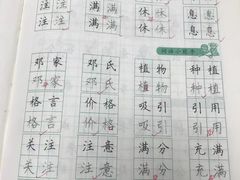 注 注 满 满 休 休 息
注 注 满 满 休 休 息
词语小能手
邓家 邓氏 植物 种植
邓家 邓氏 植物 种植
格言 价格 吸引 引用
格言 价格 吸引 引用
关注 注意 满分 充满
关注 注意 满分 充满